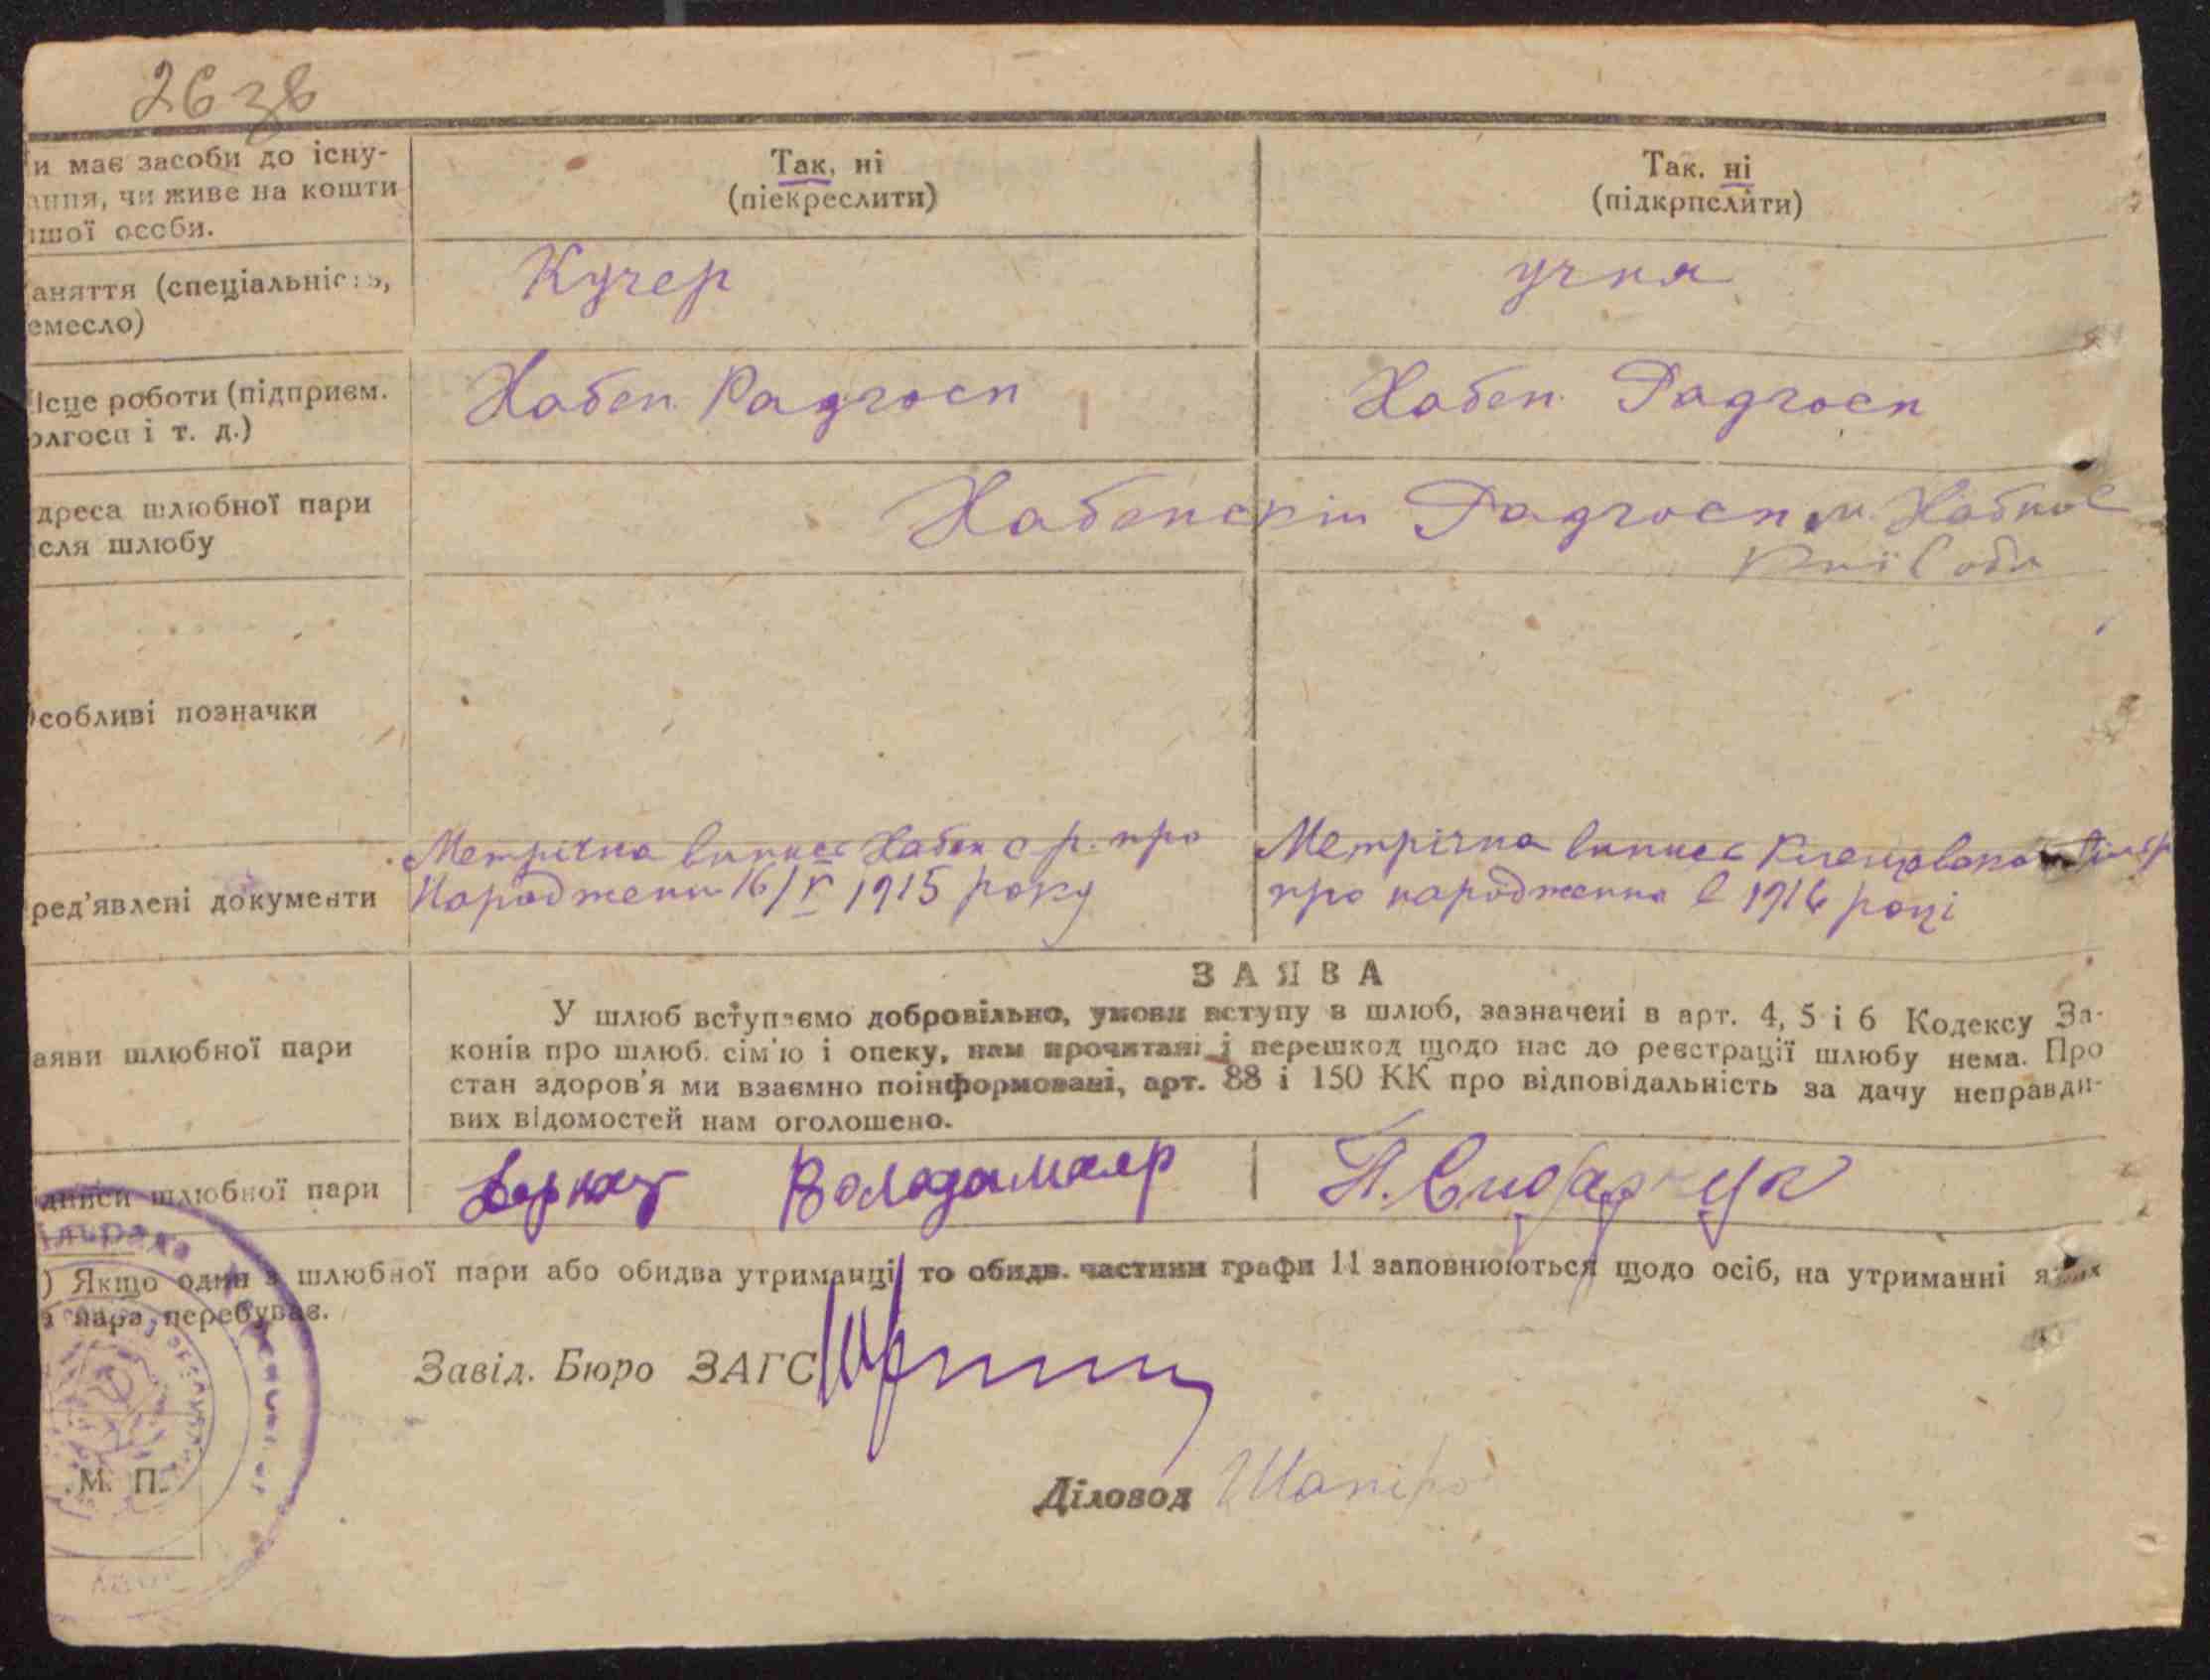 26 зв
и має засоби до існу-
ання, чи живе на кошти
ншої особи.
Так, ні
(піекреслити)
Так. ні
(підкрпслити)
аняття (спеціальність,
емесло)
Кучер
учня
ісце роботи (підприєм.
олгосп і т. д.)
Хабен. Радгосп
Хабен. Радгосп
дреса шлюбної пари
ісля шлюбу
Хабенскій Радгосп м. Хабное
Київ обл
собливі позначки
ред'явлені документи
Метрична випись Хабен с. р. про
Народження 16/V 1915 року
Метрічна випись
про народження в 1916 році
аяви шлюбної пари
ЗАЯВА
У шлюб вступаємо добровільно, умови вступу в шлюб, зазначені в арт. 4, 5 і 6 Кодексу За-
конів про шлюб. сім'ю і опеку, нам прочитані і перешкод щодо нас до реєстрації шлюбу нема. Про
стан здоров'я ми взаємно поінформовані, арт. 88 і 150 КК про відповідальність за дачу неправди-
вих відомостей нам оголошено.
дписи шлюбної пари
Володимир
) Якщо один з шлюбної пари або обидва утриманці, то обидв. частини графи 11 заповнюються щодо осіб, на утриманні яких
а пара перебуває.
Завід. Бюро ЗАГС
Діловод Шапіро
М. П.